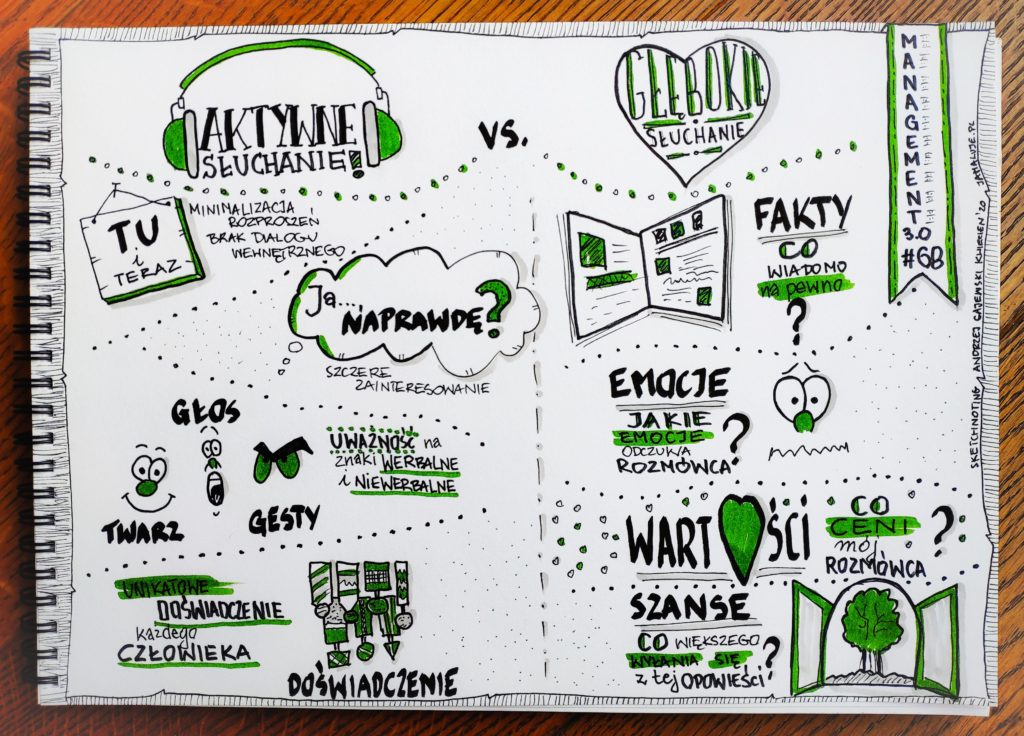 AKTYWNE
SŁUCHANIE!
vs.
GŁĘBOKIE
SŁUCHANIE
MANAGEMENT 3.0
#6B
SKETCHNOTING ANDRZEJ GAJEWSKI KWIECIEŃ'20 JAMALUJE.PL
TU
i
TERAZ
MINIMALIZACJA
ROZPROCZEŃ
BRAK DIALOGU
WEHNĘTRZNEGO
Ja...
NAPRAWDĘ?
SZCZERE
ZAINTERESOWANIE
GŁOS
TWARZ
GESTY
UWAŻNOŚĆ na
znaki WERBALNE
i NIEWERBALNE
UNIKATOWE
DOŚWIADCZENIE
każdego
CZŁOWIEKA
DOŚWIADCZENIE
FAKTY
CO
WIADOMO
na pewno
?
EMOCJE
JAKIE
EMOCJE
ODCZUWA
ROZMÓWCA?
WARTOŚCI
CO
CENI
mój
ROZMÓWCA
?
SZANSE
CO WIĘKSZEGO
WYŁANIA SIĘ
z tej OPOWIEŚCI?